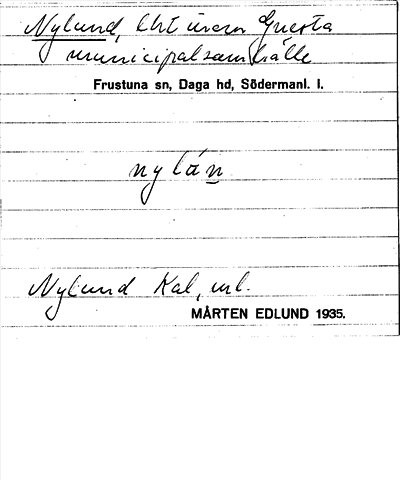 Nylund, lht inom Gnesta
municipalsamhälle
Frustuna sn, Daga hd, Södermanl. l.
nylán
Nylund Kal, ml.
MÅRTEN EDLUND 1935.